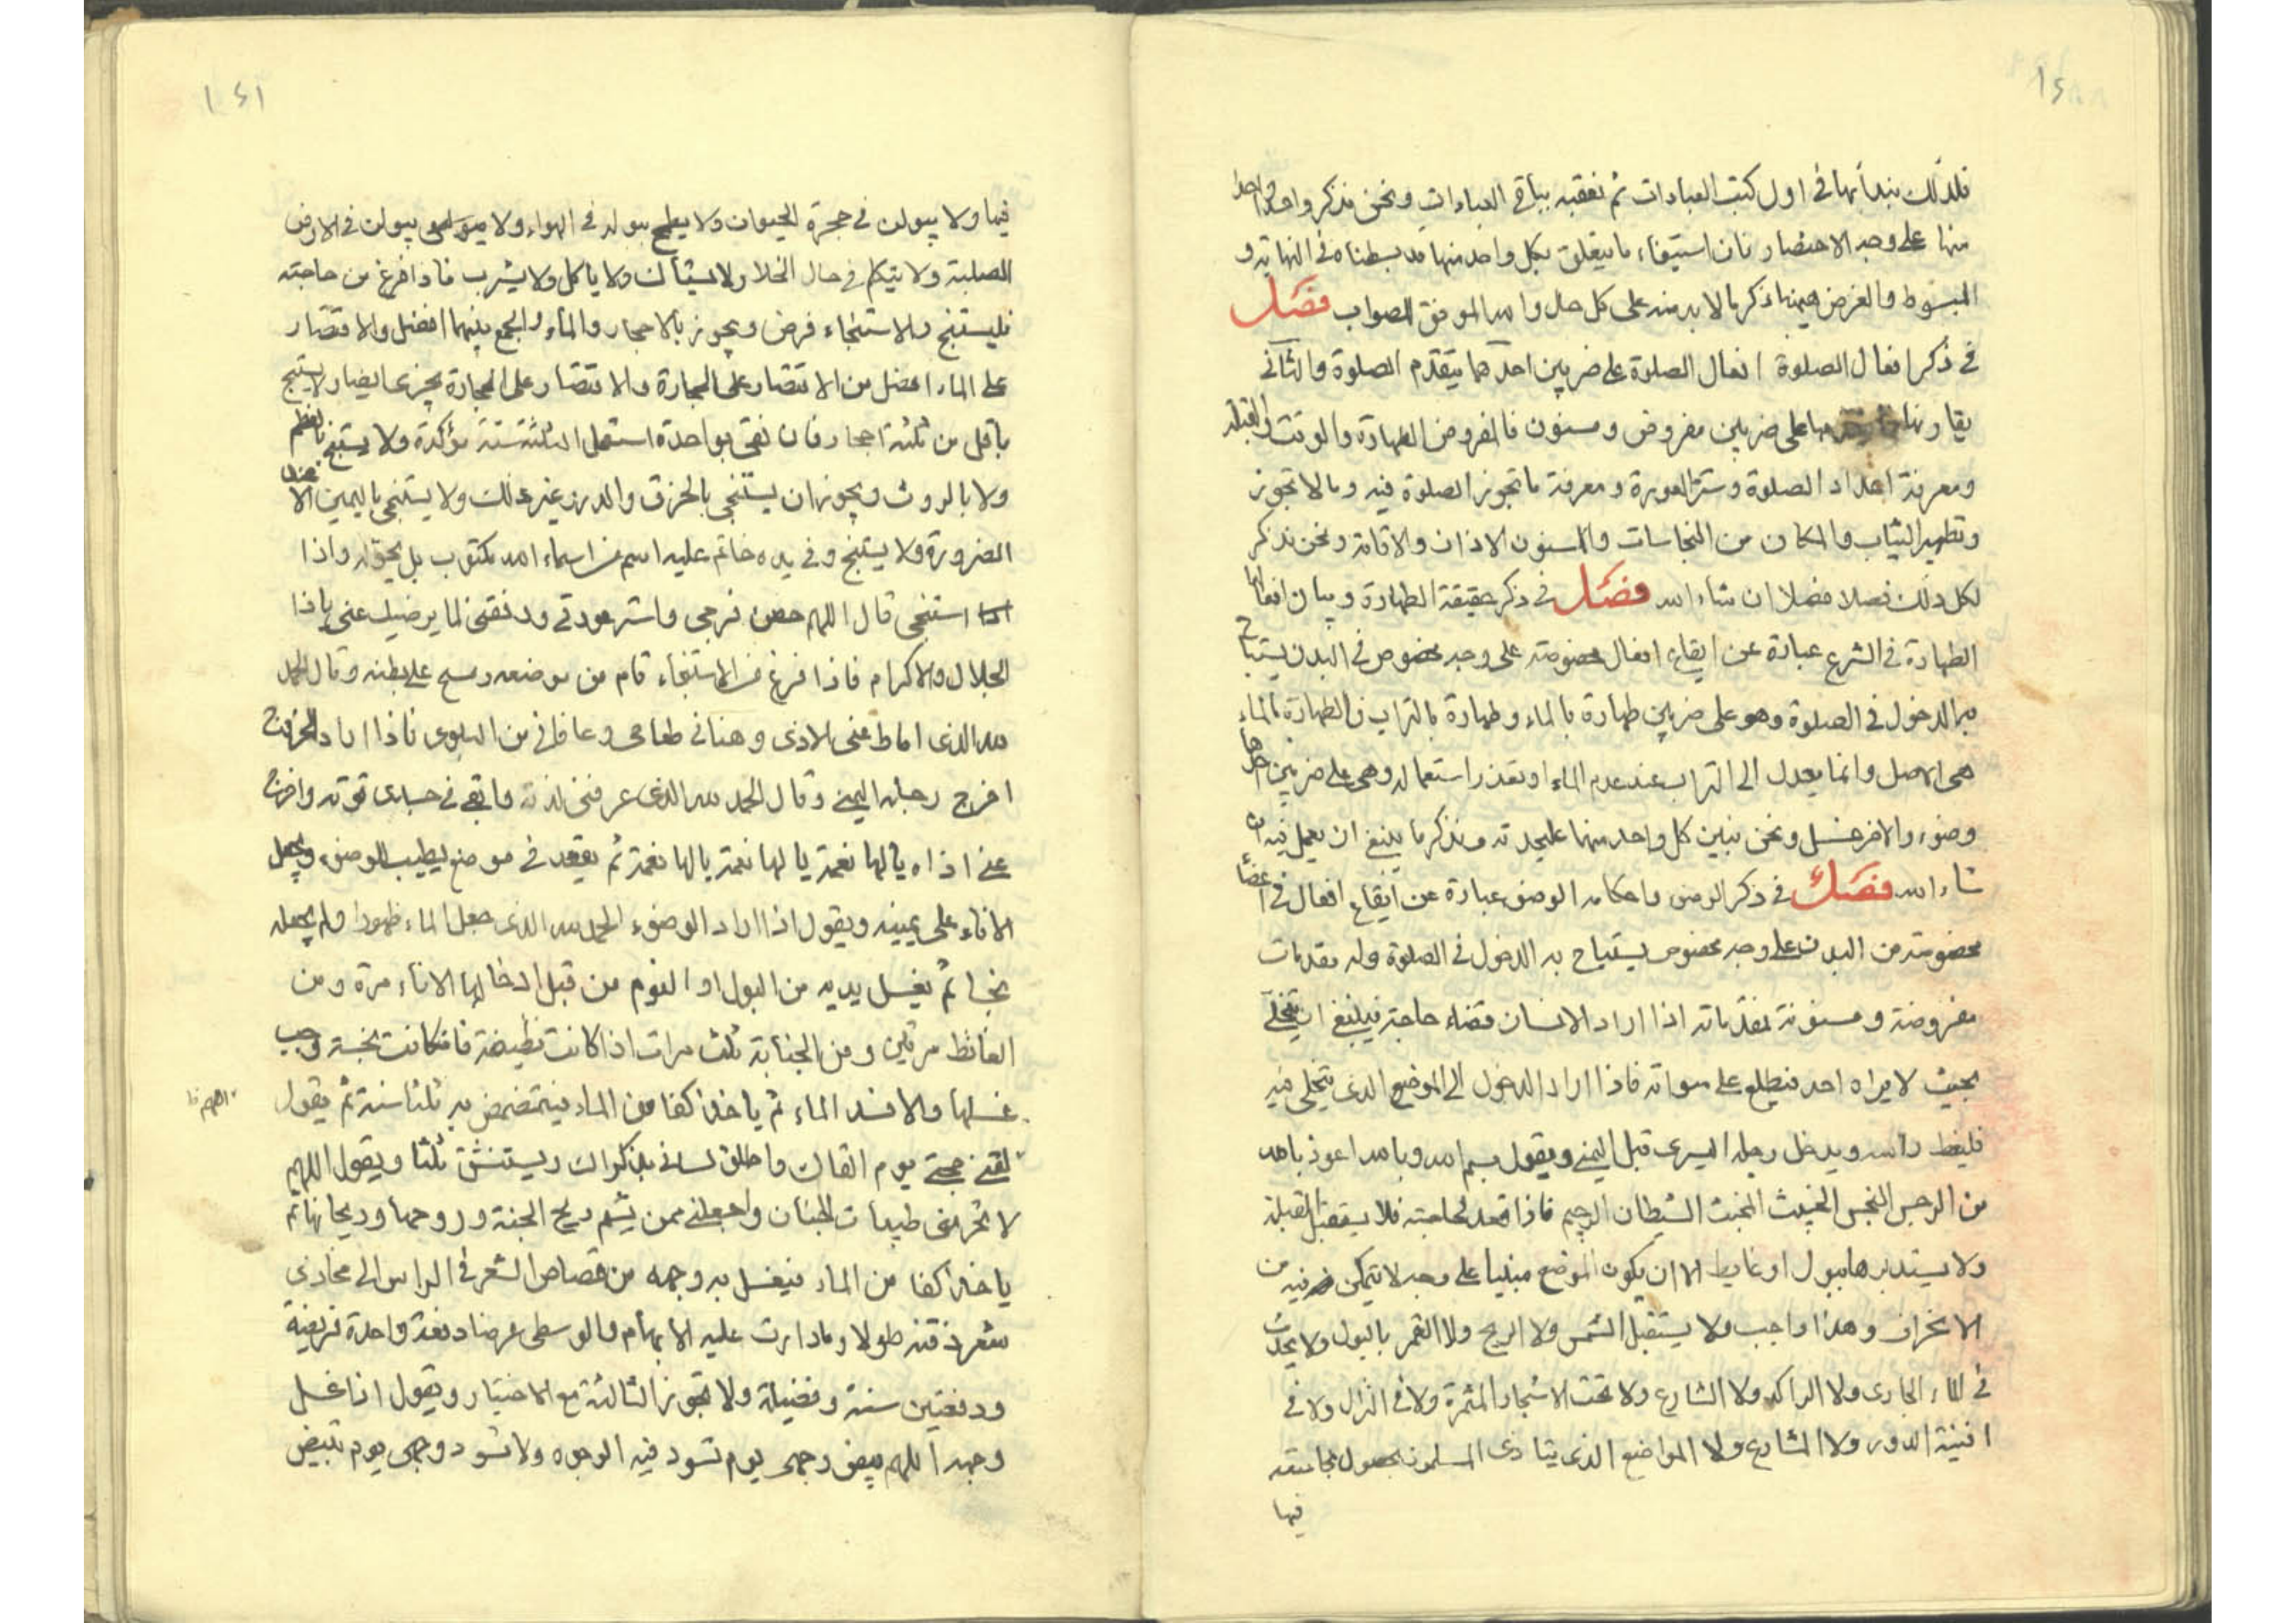 فلذلك نبدأ بها في اول كتب العبادات ثم نعقبه بباقي العبادات ونحن نذكر واحدا واحدا
منها على وجه الاختصار فان استيفاء ما يتعلق بكل واحد منها قد بسطناه في النهاية و
المبسوط والغرض هيهنا ذكر ما لا بد منه على كل حال والله الموفق للصواب فصل
في ذكر افعال الصلوة افعال الصلوة على ضربين احدهما يتقدم الصلوة والثاني
يقارنها على ضربين مفروض ومسنون فالمفروض الطهارة والوقت والقبلة
ومعرفة اعداد الصلوة وستر العورة ومعرفة ما تجوز الصلوة فيه وما لا تجوز
وتطهير الثياب والمكان من النجاسات والمسنون الاذان والاقامة ونحن نذكر
لكل ذلك فصلا فصلا ان شاء الله فصل في ذكر حقيقة الطهارة وبيان افعالها
الطهارة في الشرع عبارة عن ايقاع افعال مخصوصة على وجه مخصوص في البدن يستباح
به الدخول في الصلوة وهو على ضربين طهارة بالماء وطهارة بالتراب فالطهارة بالماء
هي الاصل وانما يعدل الى التراب عند عدم الماء او تعذر استعماله وهي على ضربين احدها
وضوء والاخر غسل ونحن نبين كل واحد منهما عليحدته ونذكر ما ينبغي ان يعمل فيه ان
شاء الله فصل في ذكر الوضوء واحكامه الوضوء عبارة عن ايقاع افعال في اعضاء
مخصوصة من البدن على وجه مخصوص يستباح به الدخول في الصلوة وله مقدمات
مفروضة ومسنونة فمقدماته اذا اراد الانسان قضاء حاجة فينبغي ان يتخلى
بحيث لا يراه احد فيطلع على سواته فاذا اراد الدخول الى الموضع الذي يتخلى فيه
فليغط راسه ويدخل رجله اليسرى قبل اليمنى ويقول بسم الله وبالله اعوذ بالله
من الرجس النجس الخبيث المخبث الشيطان الرجيم فاذا قعد لحاجته فلا يستقبل القبلة
ولا يستدبرها ببول او غايط الا ان يكون الموضع مبنيا على وجه لا يتمكن فيه من
الانحراف وهذا واجب ولا يستقبل الشمس ولا الريح ولا القمر بالبول ولا يحدث
في الماء الجاري ولا الراكد ولا الشارع ولا تحت الاشجار المثمرة ولا في النزال ولا في
افنية الدور ولا المشارع ولا المواضع الذي يتاذى المسلمون بحصول نجاسته
فيها
فيها ولا يبولن في جحرة الحيوان ولا يطمح ببوله في الهواء ولا يبولن في الارض
الصلبة ولا يتكلم في حال الخلا ولا يستاك ولا ياكل ولا يشرب فاذا فرغ من حاجته
فليستنج والاستنجاء فرض ويجوز بالاحجار والماء والجمع بينهما افضل والاقتصار
على الماء افضل من الاقتصار على الحجارة والاقتصار على الحجارة يجزي ايضا ولا يستنج
باقل من ثلثة احجار فان نقى بواحدة استعمل الثلثة سنة مؤكدة ولا يستنج بالعظم
ولا بالروث ويجوز ان يستنجي بالخزق والمدر وغير ذلك ولا يستنجي باليمين الا عند
الضرورة ولا يستنج وفي يده خاتم عليه اسم من اسماء الله مكتوب بل يحوله واذا
استنجى قال اللهم حصن فرجي واستر عورتي ووفقني لما يرضيك عني ياذا
الجلال والاكرام فاذا فرغ من الاستنجاء قام من موضعه ومسح على بطنه وقال الحمد
لله الذي اماط عني الاذى وهناني طعامي وعافاني من البلوى فاذا اراد الخروج
اخرج رجله اليمنى وقال الحمد لله الذي عرفني لذته وابقى في جسدي قوته واخرج
عني اذاه يالها نعمة يالها نعمة يالها نعمة ثم يقعد في موضع يطيب للوضوء ويجعل
الاناء على يمينه ويقول اذا اراد الوضوء الحمد لله الذي جعل الماء طهورا ولم يجعله
نجسا ثم يغسل يديه من البول او النوم من قبل ادخالها الاناء مرة ومن
الغائط مرتين ومن الجنابة ثلث مرات اذا كانت نظيفة فان كانت نجسة وجب
غسلها والا فسد الماء ثم ياخذ كفا من الماء فيتمضمض به ثلثا سنة ثم يقول
اللهم
لقني حجتي يوم القاك واطلق لساني بذكراك ويستنشق ثلثا ويقول اللهم
لا تحرمني طيبات الجنان واجعلني ممن يشم ريح الجنة وروحها وريحانها ثم
ياخذ كفا من الماء فيغسل به وجهه من قصاص الشعر في الراس الى محاذي
شعر ذقنه طولا وما دارت عليه الابهام والوسطى عرضا دفعة واحدة فريضة
ودفعتين سنة وفضيلة ولا تجوز الثالثة مع الاختيار ويقول اذا غسل
وجهه اللهم بيض وجهي يوم تسود فيه الوجوه ولا تسود وجهي يوم تبيض